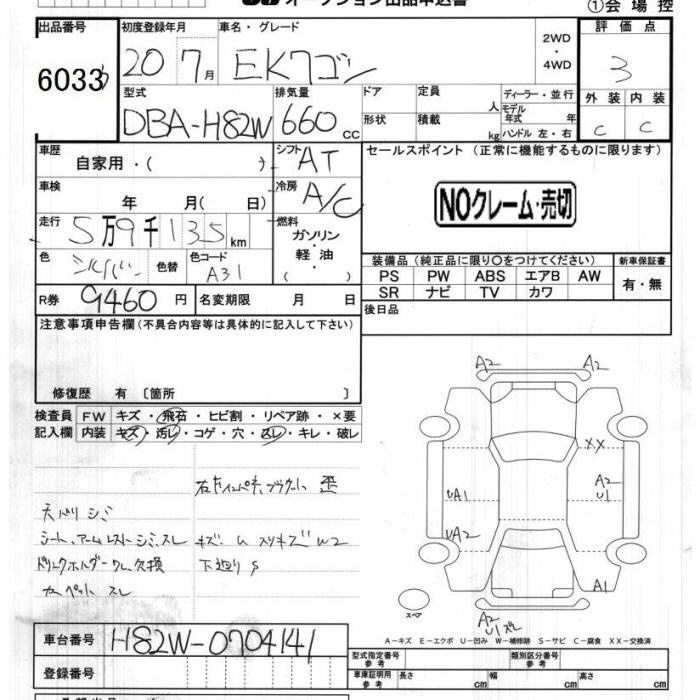 オークション出品申込書
①会場控
出品番号 初度登録年月 車名・グレード 2WD・4WD 評価点
6033 20 7月 EKワゴン 3
型式 排気量 ドア 定員 人 ディーラー・並行 外装 内装
DBA-H82W 660cc 形状 積載 kg モデル年式 年 ハンドル 左・右 C C
車歴 自家用・( ) シフト AT セールスポイント (正常に機能するものに限ります)
車検 年 月( 日) 冷房 A/C
NOクレーム・売切
走行 5万9千135km 燃料 ガソリン・軽油・( )
色 シルバー 色替 色コード A31
装備品(純正品に限り○をつけてください) 新車保証書
PS PW ABS エアB AW 有・無
SR ナビ TV カワ
R券 9460円 名変期限 月 日 後日品
注意事項申告欄(不具合内容等は具体的に記入して下さい)
修復歴 有 〔箇所 〕
検査員 FW キズ・飛石・ヒビ割・リペア跡・×要
記入欄 内装 キズ・汚レ・コゲ・穴・スレ・キレ・破レ
歪
天バリ シミ
シート、アームレスト シミ、スレ
ドリンクホルダー ワレ、欠損
下廻り S
カーペット スレ
A2 A2
XX
A2
U1
UA1
UA2
A1
A2
スペア
A-キズ E-エクボ U-凹み W-補修跡 S-サビ C-腐食 XX-交換済
車台番号 H82W-0704141
登録番号
型式指定番号 参考 類別区分番号 参考
車庫証明用 参考 長さ cm 幅 cm 高さ cm